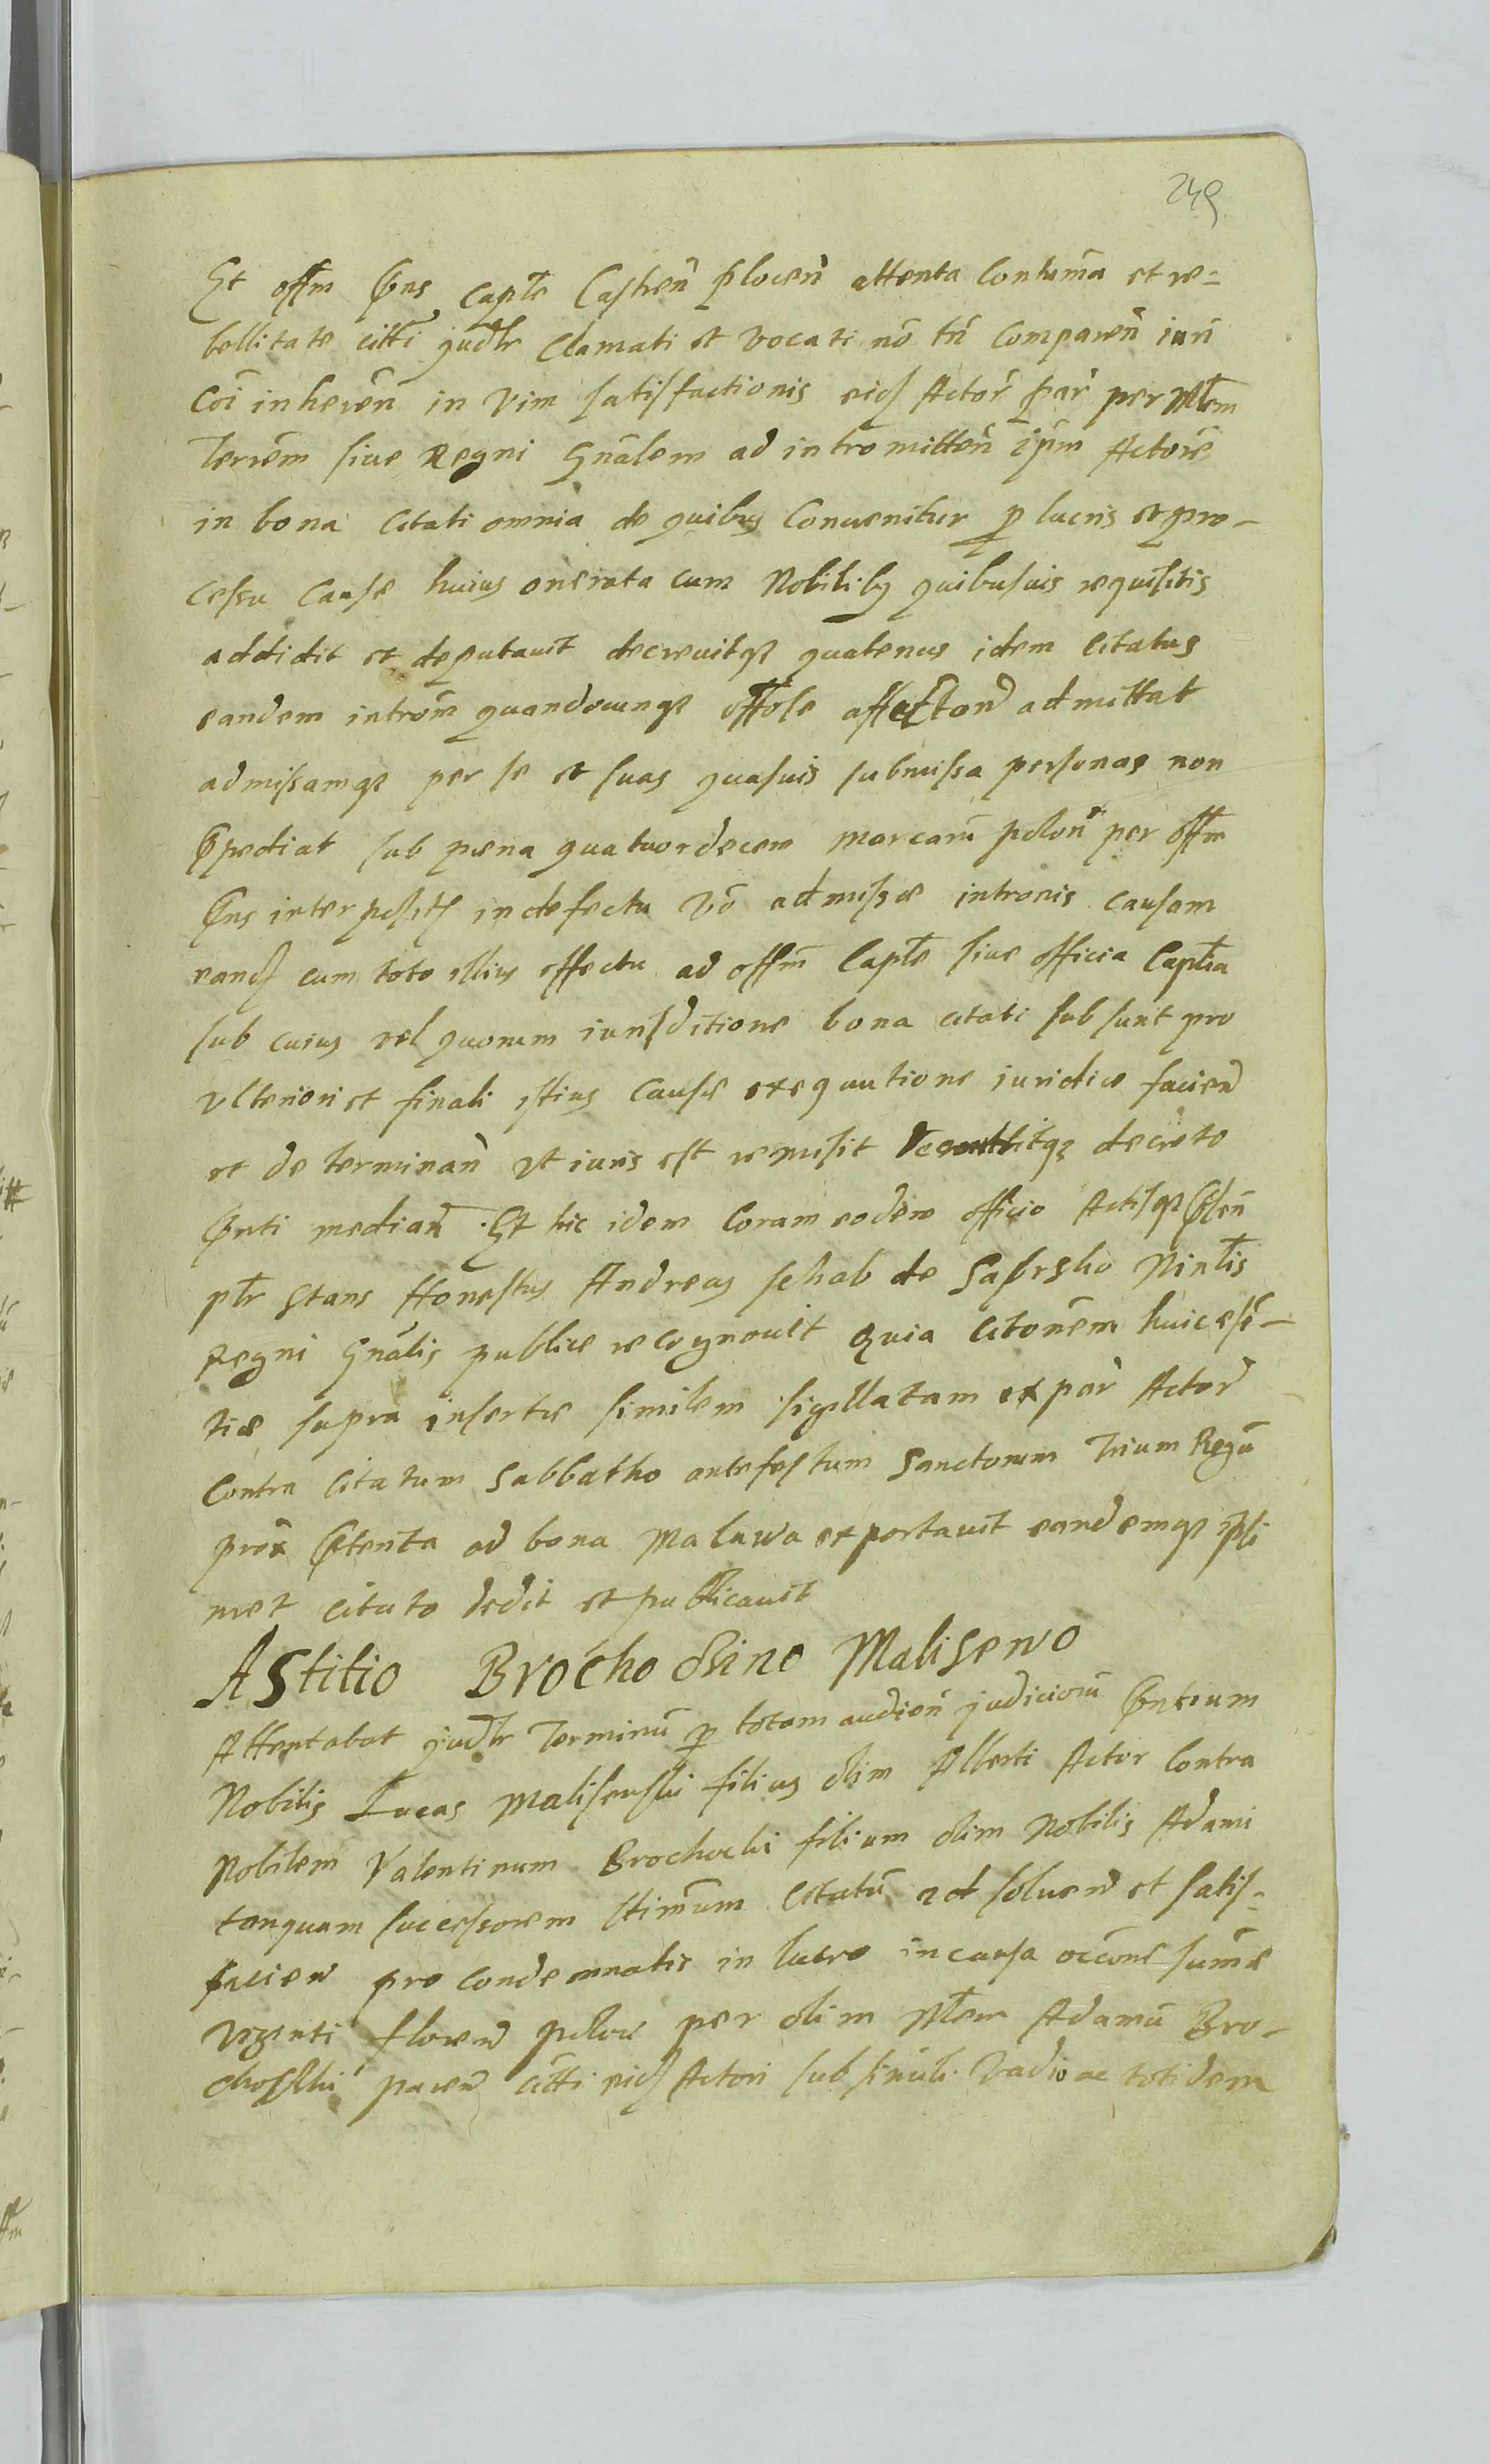 249
Et offm Pns Capte Castren Plocen attenta Contuma et re-
bellitate citti judlr Clamati et vocati no tn Comparen iuri
Coi inheren in vim satisfactionis eid Actor par per Mtem
Terrem siue Regni Gnalem ad intromitten ipm Actore
in bona Citati omnia de quibus Conuenitur p lucris et pro-
cessu Cause huius onerata cum Nobilibq quibusuis requisitis
addidit et deputauit decreuitq quatenus idem Citatus
eandem introm quandocunq offose affectand admittat
admissamq per se et suas quasuis submissa personas non
Ppediat sub pena quatuordecem marcaru polon per offm
Pns interposit in defectu vo admissæ intronis causam
eand cum toto illius effectu ad offm Capte siue officia Captia
sub cuius vel quorum iurisditione bona citati sub sunt pro
vlteriori et finali istius Causæ exequutione iuridice faciend
et de terminan vt iuris est remisit decreto
Pnti median. Et hic idem Coram eodem officio Actisq Psen
ptr Stans Honestus Andreas schab de Minlis
Regni Gnalis publice recognouit Quia Citonem huic esen-
tiæ supra insertæ similem sigillatam ex par Actor
Contra Citatum Sabbatho ante festum Sanctorum Trium Regu
prox Ptenta ad bona Maluwa exportauit eandemq ipsi
met Citato dedit et publicauit
Astitio Brochodsino Malisewo
Attentabat judlr Terminu p totam audien judicioru Pntium
Nobilis Lucas Malisewski filius olim Alberti Actor Contra
Nobilem Valentinum Brochocki filium olim Nobilis Adami
tanquam successorem Citatu ad soluend et satis-
facien pro condemnatis in lucro in causa occone sumæ
viginti floren polon per olim Mlem Adamu Bro-
chosski paren citti eid Actori sub simili vadio ac totidem